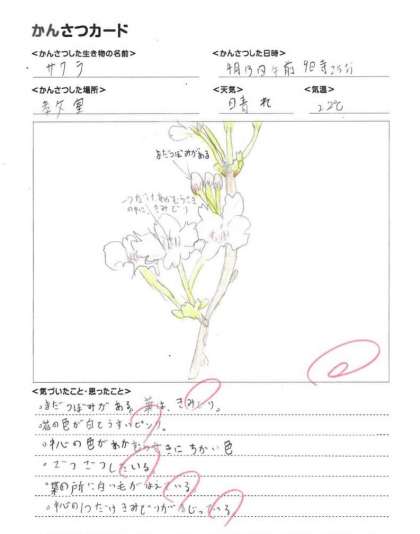 かんさつカード
<かんさつした生き物の名前>
サクラ
<かんさつした日時>
4月13日午前 9時
<かんさつした場所>
<天気>
晴れ
<気温>
22℃
まだつぼみがある
一つだけ
中に、きみどり
<気づいたこと・思ったこと>
。まだつぼみがある。葉は、きみどり。
。花の色が白とうすいピンク。
。中心の色があかむらさきにちかい色
。ざつざつしている。
。葉の所に白い毛がはえている。
。中心の1つだけきみどりがまじっている。